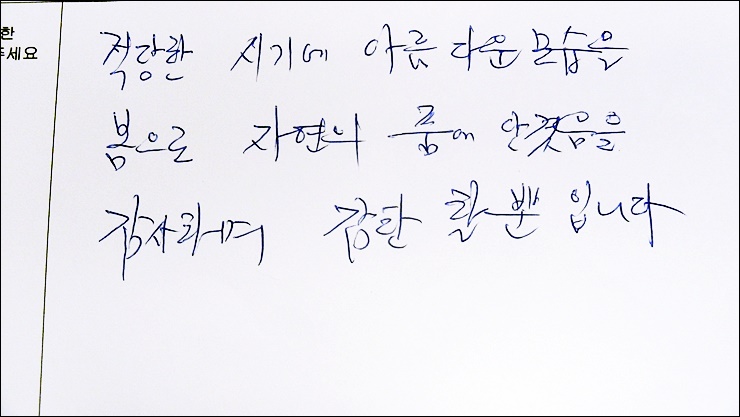 한
주세요
적당한 시기에 아름다운 모습을
봄으로 자연의 품에 안겼음을
감사하며 감탄 할 뿐 입니다